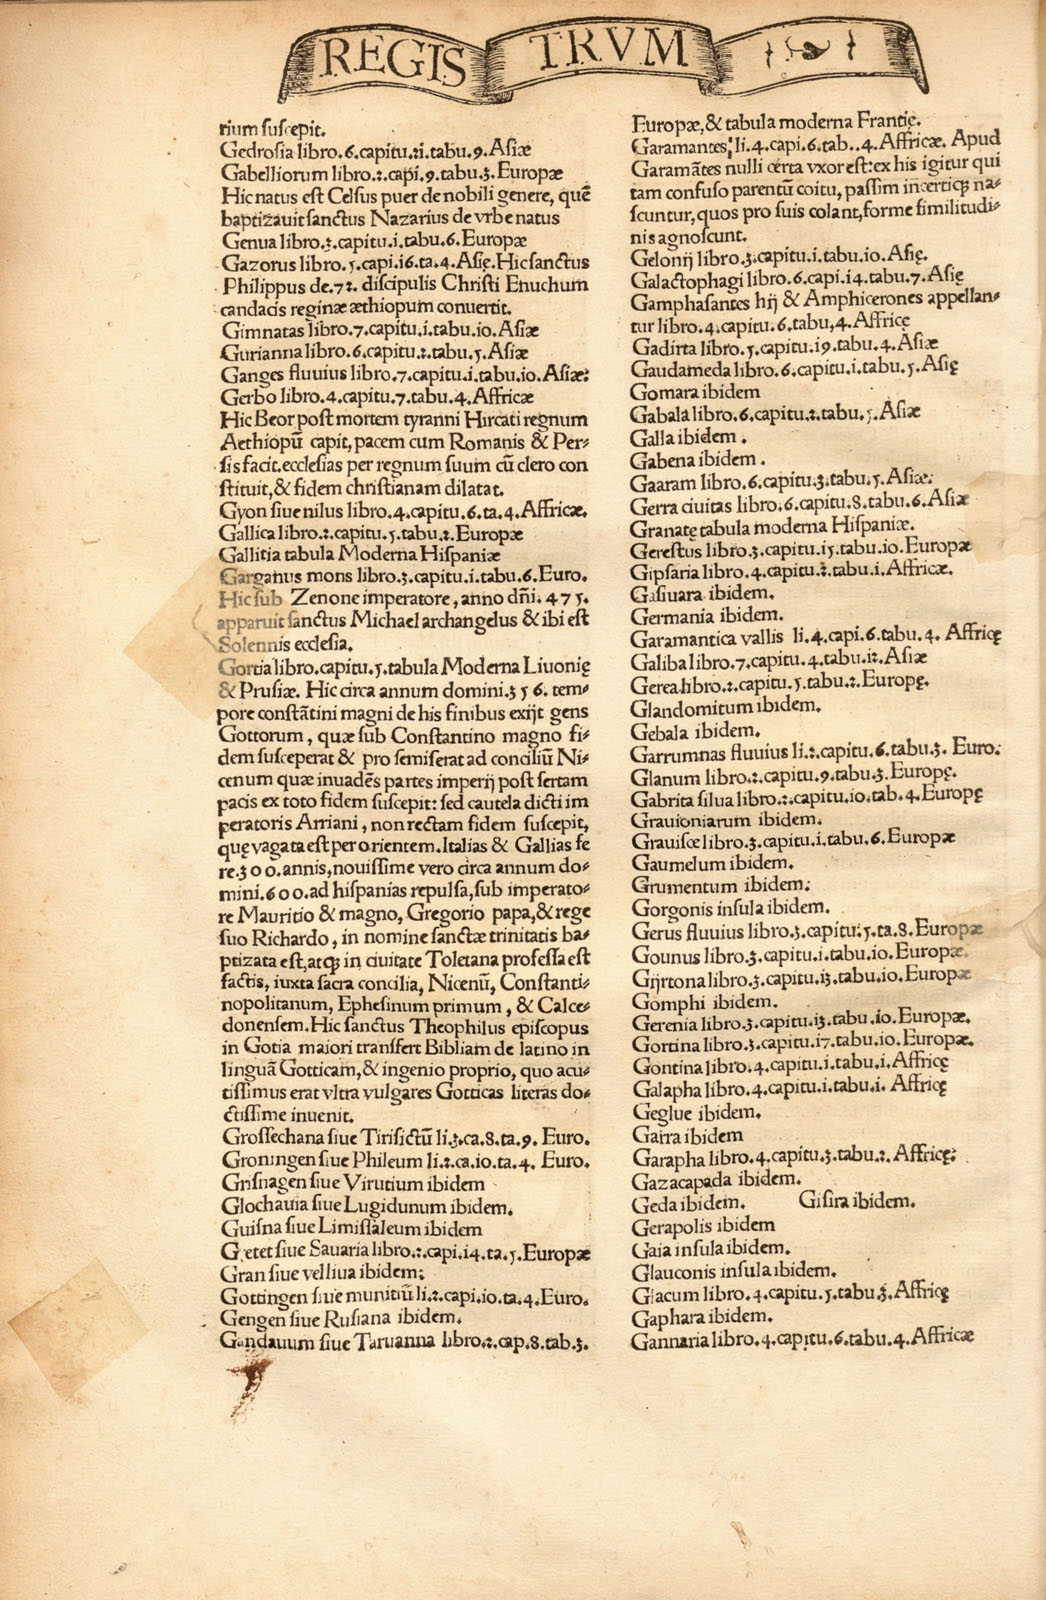 REGIS TRVM
rium suscepit.
Gedrosia libro.6.capitu.21.tabu.9.Asiæ
Gabelliorum libro.2.capi.9.tabu.3.Europæ
Hic natus est Celsus puer de nobili genere, quē
baptizauit sanctus Nazarius de vrbe natus
Genua libro.3.capitu.1.tabu.6.Europæ
Gazorus libro.5.capi.16.ta.4.Asię.Hic sanctus
Philippus de.72. discipulis Christi Enuchum
candacis reginæ æthiopum conuertit.
Gimnatas libro.7.capitu.1.tabu.10.Asiæ
Gurianna libro.6.capitu.2.tabu.5.Asiæ
Ganges fluuius libro.7.capitu.1.tabu.10.Asiæ:
Gerbo libro.4.capitu.7.tabu.4.Affricæ
Hic Beor post mortem tyranni Hircati regnum
Aethiopū capit, pacem cum Romanis & Per⸗
sis facit.ecclesias per regnum suum cū clero con
stituit,& fidem christianam dilatat.
Gyon siue nilus libro.4.capitu.6.ta.4.Affricæ.
Gallica libro.2.capitu.5.tabu.2.Europæ
Gallitia tabula Moderna Hispaniæ
Garganus mons libro.3.capitu.1.tabu.6.Euro.
Hic sub Zenone imperatore, anno dñi. 475.
apparuit sanctus Michael archangelus & ibi est
Solennis ecclesia.
Gortia libro.capitu.5.tabula Moderna Liuonię
& Prusiæ. Hic circa annum domini.356. tem⸗
pore constātini magni de his finibus exijt gens
Gottorum, quæ sub Constantino magno fi⸗
dem susceperat & pro se miserat ad conciliū Ni⸗
cenum quæ inuadēs partes imperij post sertam
pacis ex toto fidem suscepit: sed cautela dicti im
peratoris Arriani, non rectam fidem suscepit,
quę vagata est per orientem.Italias & Gallias fe
re.300.annis,nouissime vero circa annum do⸗
mini.600.ad hispanias repulsa,sub imperato⸗
re Mauritio & magno, Gregorio papa,& rege
suo Richardo, in nomine sanctæ trinitatis ba⸗
ptizata est,atq; in ciuitate Toletana professa est
factis, iuxta sacra concilia, Nicenū, Constanti⸗
nopolitanum, Ephesinum primum, & Calce⸗
donensem.Hic sanctus Theophilus episcopus
in Gotia maiori transfert Bibliam de latino in
linguā Gotticam,& ingenio proprio, quo acu⸗
tissimus erat vltra vulgares Gotticas literas do⸗
ctissime inuenit.
Grossechana siue Tirisictū li.3.ca.8.ta.9. Euro.
Groningen siue Phileum li.2.ca.10.ta.4. Euro.
Grisnagen siue Virutium ibidem
Glochauia siue Lugidunum ibidem.
Guisna siue Limissaleum ibidem
Gretet siue Sauaria libro.2.capi.14.ta.5.Europæ
Gran siue velliua ibidem;
Gottingen siue munitiū li.2.capi.10.ta.4.Euro.
Gengen siue Rusiana ibidem.
Gandauum siue Taruanna libro.2.cap.8.tab.3.
Europæ,& tabula moderna Frantię.
Garamantes, li.4.capi.6.tab..4.Affricæ. Apud
Garamātes nulli certa vxor est:ex his igitur qui
tam confuso parentū coitu, passim incertiq; na⸗
scuntur,quos pro suis colant,forme similitudi⸗
nis agnoscunt.
Gelonij libro.3.capitu.1.tabu.10.Asię.
Galactophagi libro.6.capi.14.tabu.7.Asię
Gamphasantes hij & Amphicerones appellan⸗
tur libro.4.capitu.6.tabu,4.Affricę
Gadirta libro.5.capitu.19.tabu.4.Asiæ
Gaudameda libro.6.capitu.1.tabu.5.Asię
Gomara ibidem
Gabala libro.6.capitu.2.tabu.5.Asiæ
Galla ibidem.
Gabena ibidem.
Gaaram libro.6.capitu.3.tabu.5.Asiæ:
Gerra ciuitas libro.6.capitu.8.tabu.6.Asiæ
Granatę tabula moderna Hispaniæ.
Gerestus libro.3.capitu.15.tabu.10.Europæ
Gipsaria libro.4.capitu.2.tabu.1.Affricæ.
Gasiuara ibidem.
Germania ibidem.
Garamantica vallis li.4.capi.6.tabu.4. Affricę
Galiba libro.7.capitu.4.tabu.12.Asiæ
Gerea libro.2.capitu.5.tabu.2.Europę.
Glandomitum ibidem.
Gebala ibidem.
Garrumnas fluuius li.2.capitu.6.tabu.3. Euro:
Glanum libro.2.capitu.9.tabu.3.Europę.
Gabrita silua libro.2.capitu.10.tab.4.Europę
Grauioniarum ibidem.
Grauisce libro.3.capitu.1.tabu.6.Europæ
Gaumelum ibidem.
Grumentum ibidem;
Gorgonis insula ibidem.
Gerus fluuius libro.3.capitu:5.ta.8.Europæ
Gounus libro.3.capitu.1.tabu.10.Europæ.
Gijrtona libro.3.capitu.13.tabu.10.Europæ
Gomphi ibidem.
Gerenia libro.3.capitu.13.tabu.10.Europæ.
Gortina libro.3.capitu.17.tabu.10.Europæ.
Gontina libro.4.capitu.1.tabu.1.Affricę
Galapha libro.4.capitu.1.tabu.1. Affricę
Geglue ibidem.
Garra ibidem
Garapha libro.4.capitu.3.tabu.2.Affricę:
Gazacapada ibidem.
Geda ibidem. Gisira ibidem.
Gerapolis ibidem
Gaia insula ibidem.
Glauconis insula ibidem.
Glacum libro.4.capitu.5.tabu.3.Affricę
Gaphara ibidem.
Gannaria libro.4.capitu.6.tabu.4.Affricæ